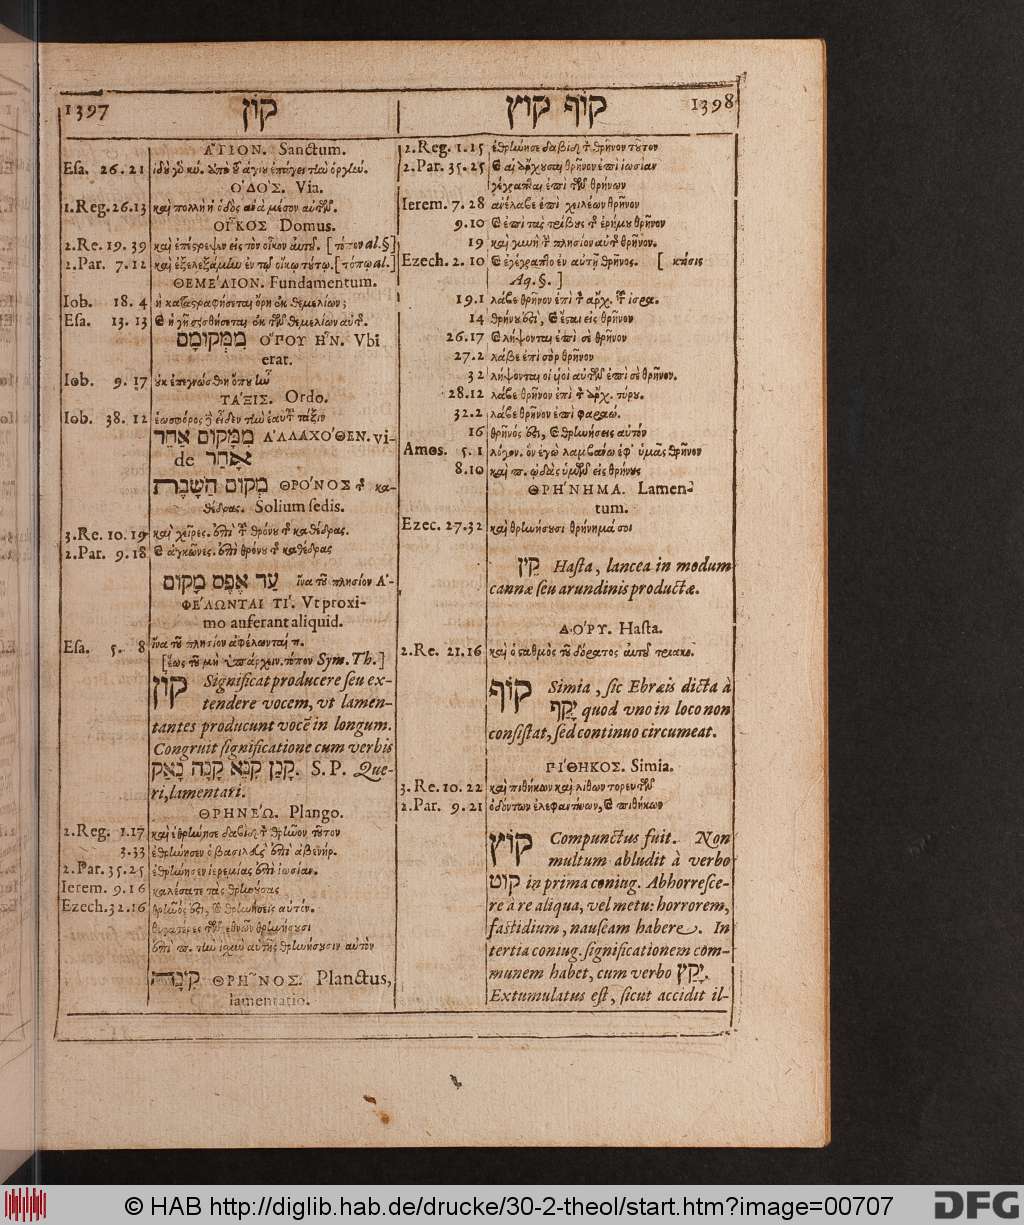 1397 קון
קוף קוץ 1398
ἍΓΙΟΝ. Sanctum.
Esa. 26.21
ὉΔΌΣ. Via.
1.Reg.26.13 καὶ πολλὴ ἡ ὁδὸς ἀνὰ μέσον αὐτῶν.
ΟἾΚΟΣ Domus.
2.Re. 19. 39 καὶ ἐπέστρεψεν εἰς τὸν οἶκον αὐτοῦ. [τόπον al.§]
2.Par. 7.12 καὶ ἐξελεξάμην ἐν τῷ οἴκῳ τούτῳ. [τόπῳ al.]
ΘΕΜΕΛΙΟΝ. Fundamentum.
Iob. 18. 4 ἢ καταστραφήσεται ὄρη ἐκ θεμελίων;
Esa. 13. 13 καὶ ἡ γῆ σεισθήσεται ἐκ τῶν θεμελίων αὐτῆς.
מִמְּקוֹמָם ὍΠΟΥ ἮΝ. Vbi
erat.
Iob. 9. 17 οὐκ ἐπεγνώσθη ὅπου ἦν
ΤΆΞΙΣ. Ordo.
Iob. 38. 12 ἑωσφόρος δὲ εἶδεν τὴν ἑαυτοῦ τάξιν
מִמָּקוֹם אַחֵר ἈΛΛΑΧΌΘΕΝ. vi-
de אַחֵר
מְקוֹם הַשָּׁבֶת ΘΡΌΝΟΣ τῆς κα-
θέδρας. Solium sedis.
3.Re. 10. 19 καὶ χεῖρες. ἐπὶ τοῦ θρόνου τῆς καθέδρας.
2.Par. 9.18 καὶ ἀγκῶνες. ἐπὶ θρόνου τῆς καθέδρας
עַד אֶפֶס מָקוֹם ἵνα τοῦ πλησίον Ἀ-
ΦΈΛΩΝΤΑΙ ΤΙ. Vt proxi-
mo auferant aliquid.
Esa. 5. 8 ἵνα τοῦ πλησίον ἀφέλωνταί τι.
[ἕως τοῦ μὴ ὑπάρχειν τόπον Sym. Th.]
קוֹן Significat producere seu ex-
tendere vocem, vt lamen-
tantes producunt vocē in longum.
Congruit significatione cum verbis
קָנַן קִנֵּא קָנָה נָאַק. S.P. Que-
ri, lamentari.
ΘΡΗΝΈΩ. Plango.
2.Reg. 1.17 καὶ ἐθρήνησε δαβὶδ τὸν θρῆνον τοῦτον
3.33 ἐθρήνησεν ὁ βασιλεὺς ἐπὶ ἀβενήρ.
2.Par. 35.25 ἐθρήνησεν ἱερεμίας ἐπὶ ἰωσίαν.
Ierem. 9.16 καλέσατε τὰς θρηνούσας
Ezech. 32.16 θρῆνός ἐστι, καὶ θρηνήσεις αὐτόν.
θυγατέρες τῶν ἐθνῶν θρηνήσουσι
ἐπὶ π. τὴν ἰσχὺν αὐτῆς θρηνήσουσιν αὐτὸν
קִינָה ΘΡΗ͂ΝΟΣ. Planctus,
lamentatio.
2. Reg. 1.15 ἐθρήνησε δαβὶδ τὸν θρῆνον τοῦτον
2.Par. 35.25 καὶ αἱ ἄρχουσαι θρῆνον ἐπὶ ἰωσίαν
γέγραπται ἐπὶ τῶν θρήνων
Ierem. 7. 28 ἀνέλαβε ἐπὶ χειλέων θρῆνον
9.10 καὶ ἐπὶ τὰς τρίβους τῆς ἐρήμου θρῆνον
19 καὶ γυνὴ τὴν πλησίον αὐτῆς θρῆνον.
Ezech. 2. 10 καὶ ἐγέγραπτο ἐν αὐτῇ θρῆνος. [κτῆσις
Aq.§.]
19.1 λάβε θρῆνον ἐπὶ τὸν ἄρχ. τοῦ ἰσρα.
14 θρῆνός ἐστι, καὶ ἔσται εἰς θρῆνον
26.17 καὶ λήψονται ἐπὶ σὲ θρῆνον
27.2 λάβε ἐπὶ σὸρ θρῆνον
32 λήψονται οἱ υἱοὶ αὐτῶν ἐπὶ σὲ θρῆνον.
28.12 λάβε θρῆνον ἐπὶ τὸν ἄρχ. τύρου.
32.2 λάβε θρῆνον ἐπὶ φαραώ.
16 θρῆνός ἐστι, καὶ θρηνήσεις αὐτόν
Amos. 5. 1 λόγον. ὃν ἐγὼ λαμβάνω ἐφ᾽ ὑμᾶς θρῆνον
8.10 καὶ π. ᾠδὰς ὑμῶν εἰς θρήνους
ΘΡΉΝΗΜΑ. Lamen-
tum.
Ezec. 27.32 καὶ θρηνήσουσι θρήνημά σοι
קַיִן Hasta, lancea in modum
cannæ seu arundinis productæ.
ΔΌΡΥ. Hasta.
2. Re. 21.16 καὶ ὁ σταθμὸς τοῦ δόρατος αὐτοῦ τριακο.
קוֹף Simia, sic Ebræis dicta à
יָקַף quod vno in loco non
consistat, sed continuo circumeat.
ΠΊΘΗΚΟΣ. Simia.
3. Re. 10. 22 καὶ πιθήκων καὶ λίθων τορευτῶν
2.Par. 9.21 ὀδόντων ἐλεφαντίνων, καὶ πιθήκων
קוֹץ Compunctus fuit. Non
multum abludit à verbo
קוט in prima coniug. Abhorresce-
re à re aliqua, vel metu: horrorem,
fastidium, nauseam habere. In
tertia coniug. significationem com-
munem habet, cum verbo יָקַץ.
Extumulatus est, sicut accidit il-
© HAB http://diglib.hab.de/drucke/30-2-theol/start.htm?image=00707
DFG